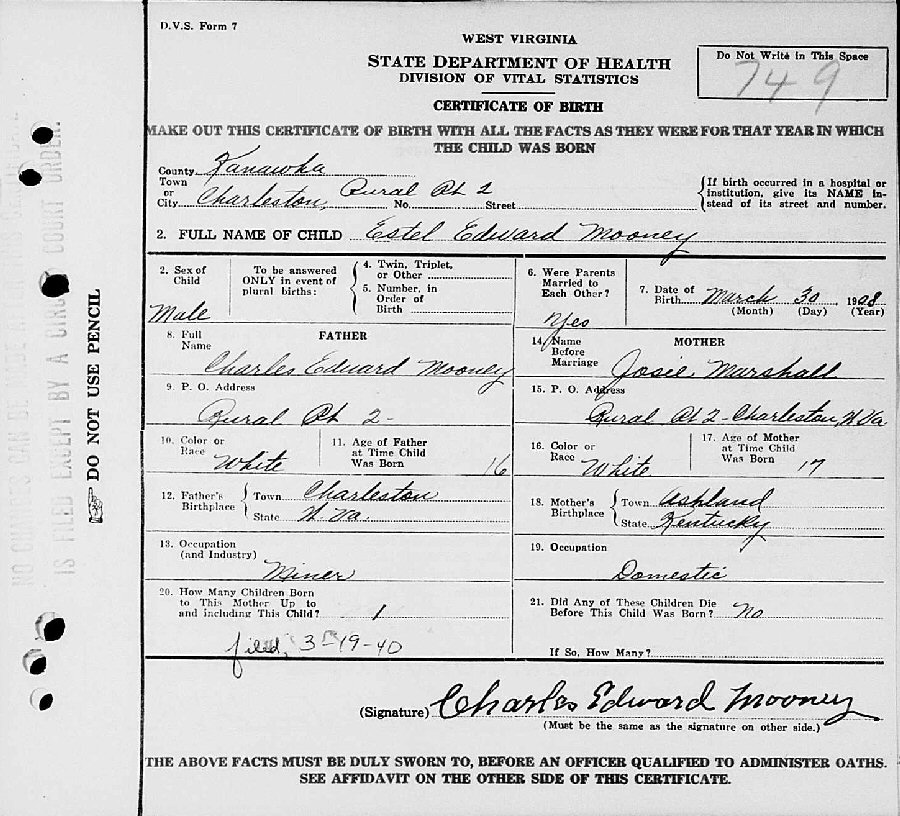 D.V.S. Form 7
WEST VIRGINIA
STATE DEPARTMENT OF HEALTH
DIVISION OF VITAL STATISTICS
CERTIFICATE OF BIRTH
Do Not Write in This Space
749
MAKE OUT THIS CERTIFICATE OF BIRTH WITH ALL THE FACTS AS THEY WERE FOR THAT YEAR IN WHICH
THE CHILD WAS BORN
County Kanawha
Town or City Charleston, Rural Rt 2 No. Street
If birth occurred in a hospital or institution, give its NAME instead of its street and number.
2. FULL NAME OF CHILD Estel Edward Mooney
2. Sex of Child Male
To be answered ONLY in event of plural births:
4. Twin, Triplet, or Other
5. Number, in Order of Birth
6. Were Parents Married to Each Other? Yes
7. Date of Birth March 30 1908
(Month) (Day) (Year)
FATHER
8. Full Name Charles Edward Mooney
9. P. O. Address
Rural Rt 2-
10. Color or Race White
11. Age of Father at Time Child Was Born 16
12. Father's Birthplace Town Charleston
State W Va.
13. Occupation (and Industry) Miner
MOTHER
14. Name Before Marriage Josie Marshall
15. P. O. Address
Rural Rt 2- Charleston, W Va
16. Color or Race White
17. Age of Mother at Time Child Was Born 17
18. Mother's Birthplace Town Ashland
State Kentucky
19. Occupation
Domestic
20. How Many Children Born to This Mother Up to and including This Child? 1
21. Did Any of These Children Die Before This Child Was Born? No
If So, How Many?
filed, 3-19-40
(Signature) Charles Edward Mooney
(Must be the same as the signature on other side.)
THE ABOVE FACTS MUST BE DULY SWORN TO, BEFORE AN OFFICER QUALIFIED TO ADMINISTER OATHS.
SEE AFFIDAVIT ON THE OTHER SIDE OF THIS CERTIFICATE.
DO NOT USE PENCIL
IS FILED EXCEPT BY A CIRC COURT ORDER.